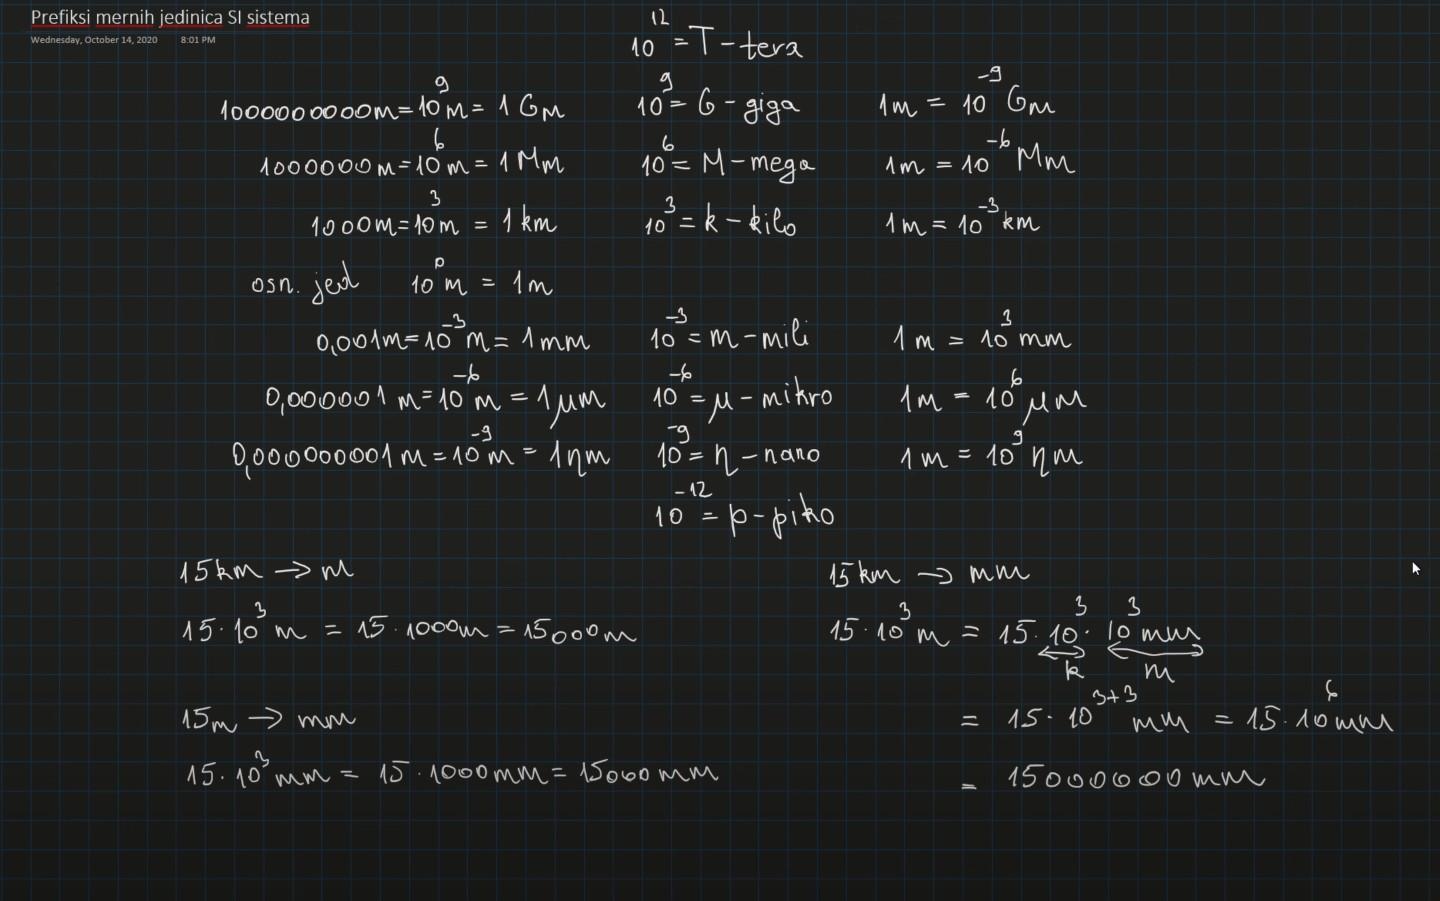 Prefiksi mernih jedinica SI sistema
Wednesday, October 14, 2020 8:01 PM
10¹² = T - tera
1000000000m = 10⁹m = 1 Gm 10⁹ = G - giga 1m = 10⁻⁹ Gm
1000000m = 10⁶m = 1 Mm 10⁶ = M - mega 1m = 10⁻⁶ Mm
1000m = 10³m = 1 km 10³ = k - kilo 1m = 10⁻³ km
osn. jed 10⁰m = 1m
0,001m = 10⁻³m = 1 mm 10⁻³ = m - mili 1m = 10³ mm
0,000001 m = 10⁻⁶m = 1 μm 10⁻⁶ = μ - mikro 1m = 10⁶ μm
0,000000001 m = 10⁻⁹m = 1ηm 10⁻⁹ = η - nano 1m = 10⁹ ηm
10⁻¹² = p - piko
15km → m
15·10³ m = 15·1000m = 15000m
15m → mm
15·10³ mm = 15·1000mm = 15000 mm
15km → mm
15·10³ m = 15·10³·10³ mm
k m
= 15·10³⁺³ mm = 15·10⁶ mm
= 15000000 mm